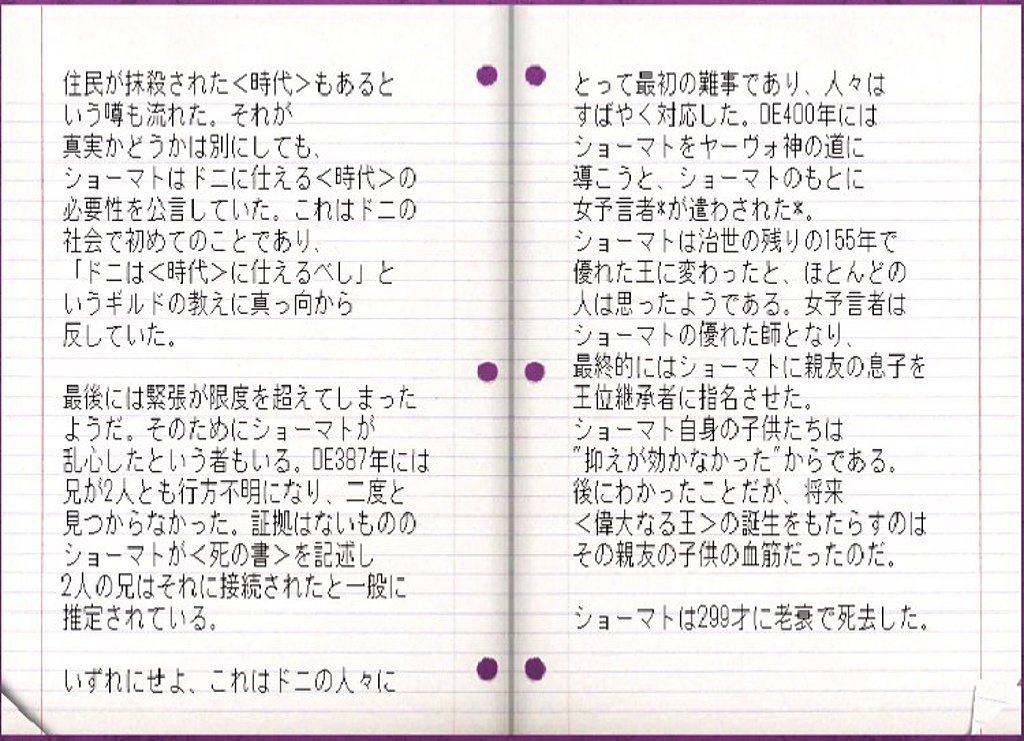 住民が抹殺された＜時代＞もあると
いう噂も流れた。それが
真実かどうかは別にしても、
ショーマトはドニに仕える＜時代＞の
必要性を公言していた。これはドニの
社会で初めてのことであり、
「ドニは＜時代＞に仕えるべし」と
いうギルドの教えに真っ向から
反していた。
最後には緊張が限度を超えてしまった
ようだ。そのためにショーマトが
乱心したという者もいる。DE387年には
兄が2人とも行方不明になり、二度と
見つからなかった。証拠はないものの
ショーマトが＜死の書＞を記述し
2人の兄はそれに接続されたと一般に
推定されている。
いずれにせよ、これはドニの人々に
とって最初の難事であり、人々は
すばやく対応した。DE400年には
ショーマトをヤーヴォ神の道に
導こうと、ショーマトのもとに
女予言者*が遣わされた*。
ショーマトは治世の残りの155年で
優れた王に変わったと、ほとんどの
人は思ったようである。女予言者は
ショーマトの優れた師となり、
最終的にはショーマトに親友の息子を
王位継承者に指名させた。
ショーマト自身の子供たちは
"抑えが効かなかった"からである。
後にわかったことだが、将来
＜偉大なる王＞の誕生をもたらすのは
その親友の子供の血筋だったのだ。
ショーマトは299才に老衰で死去した。